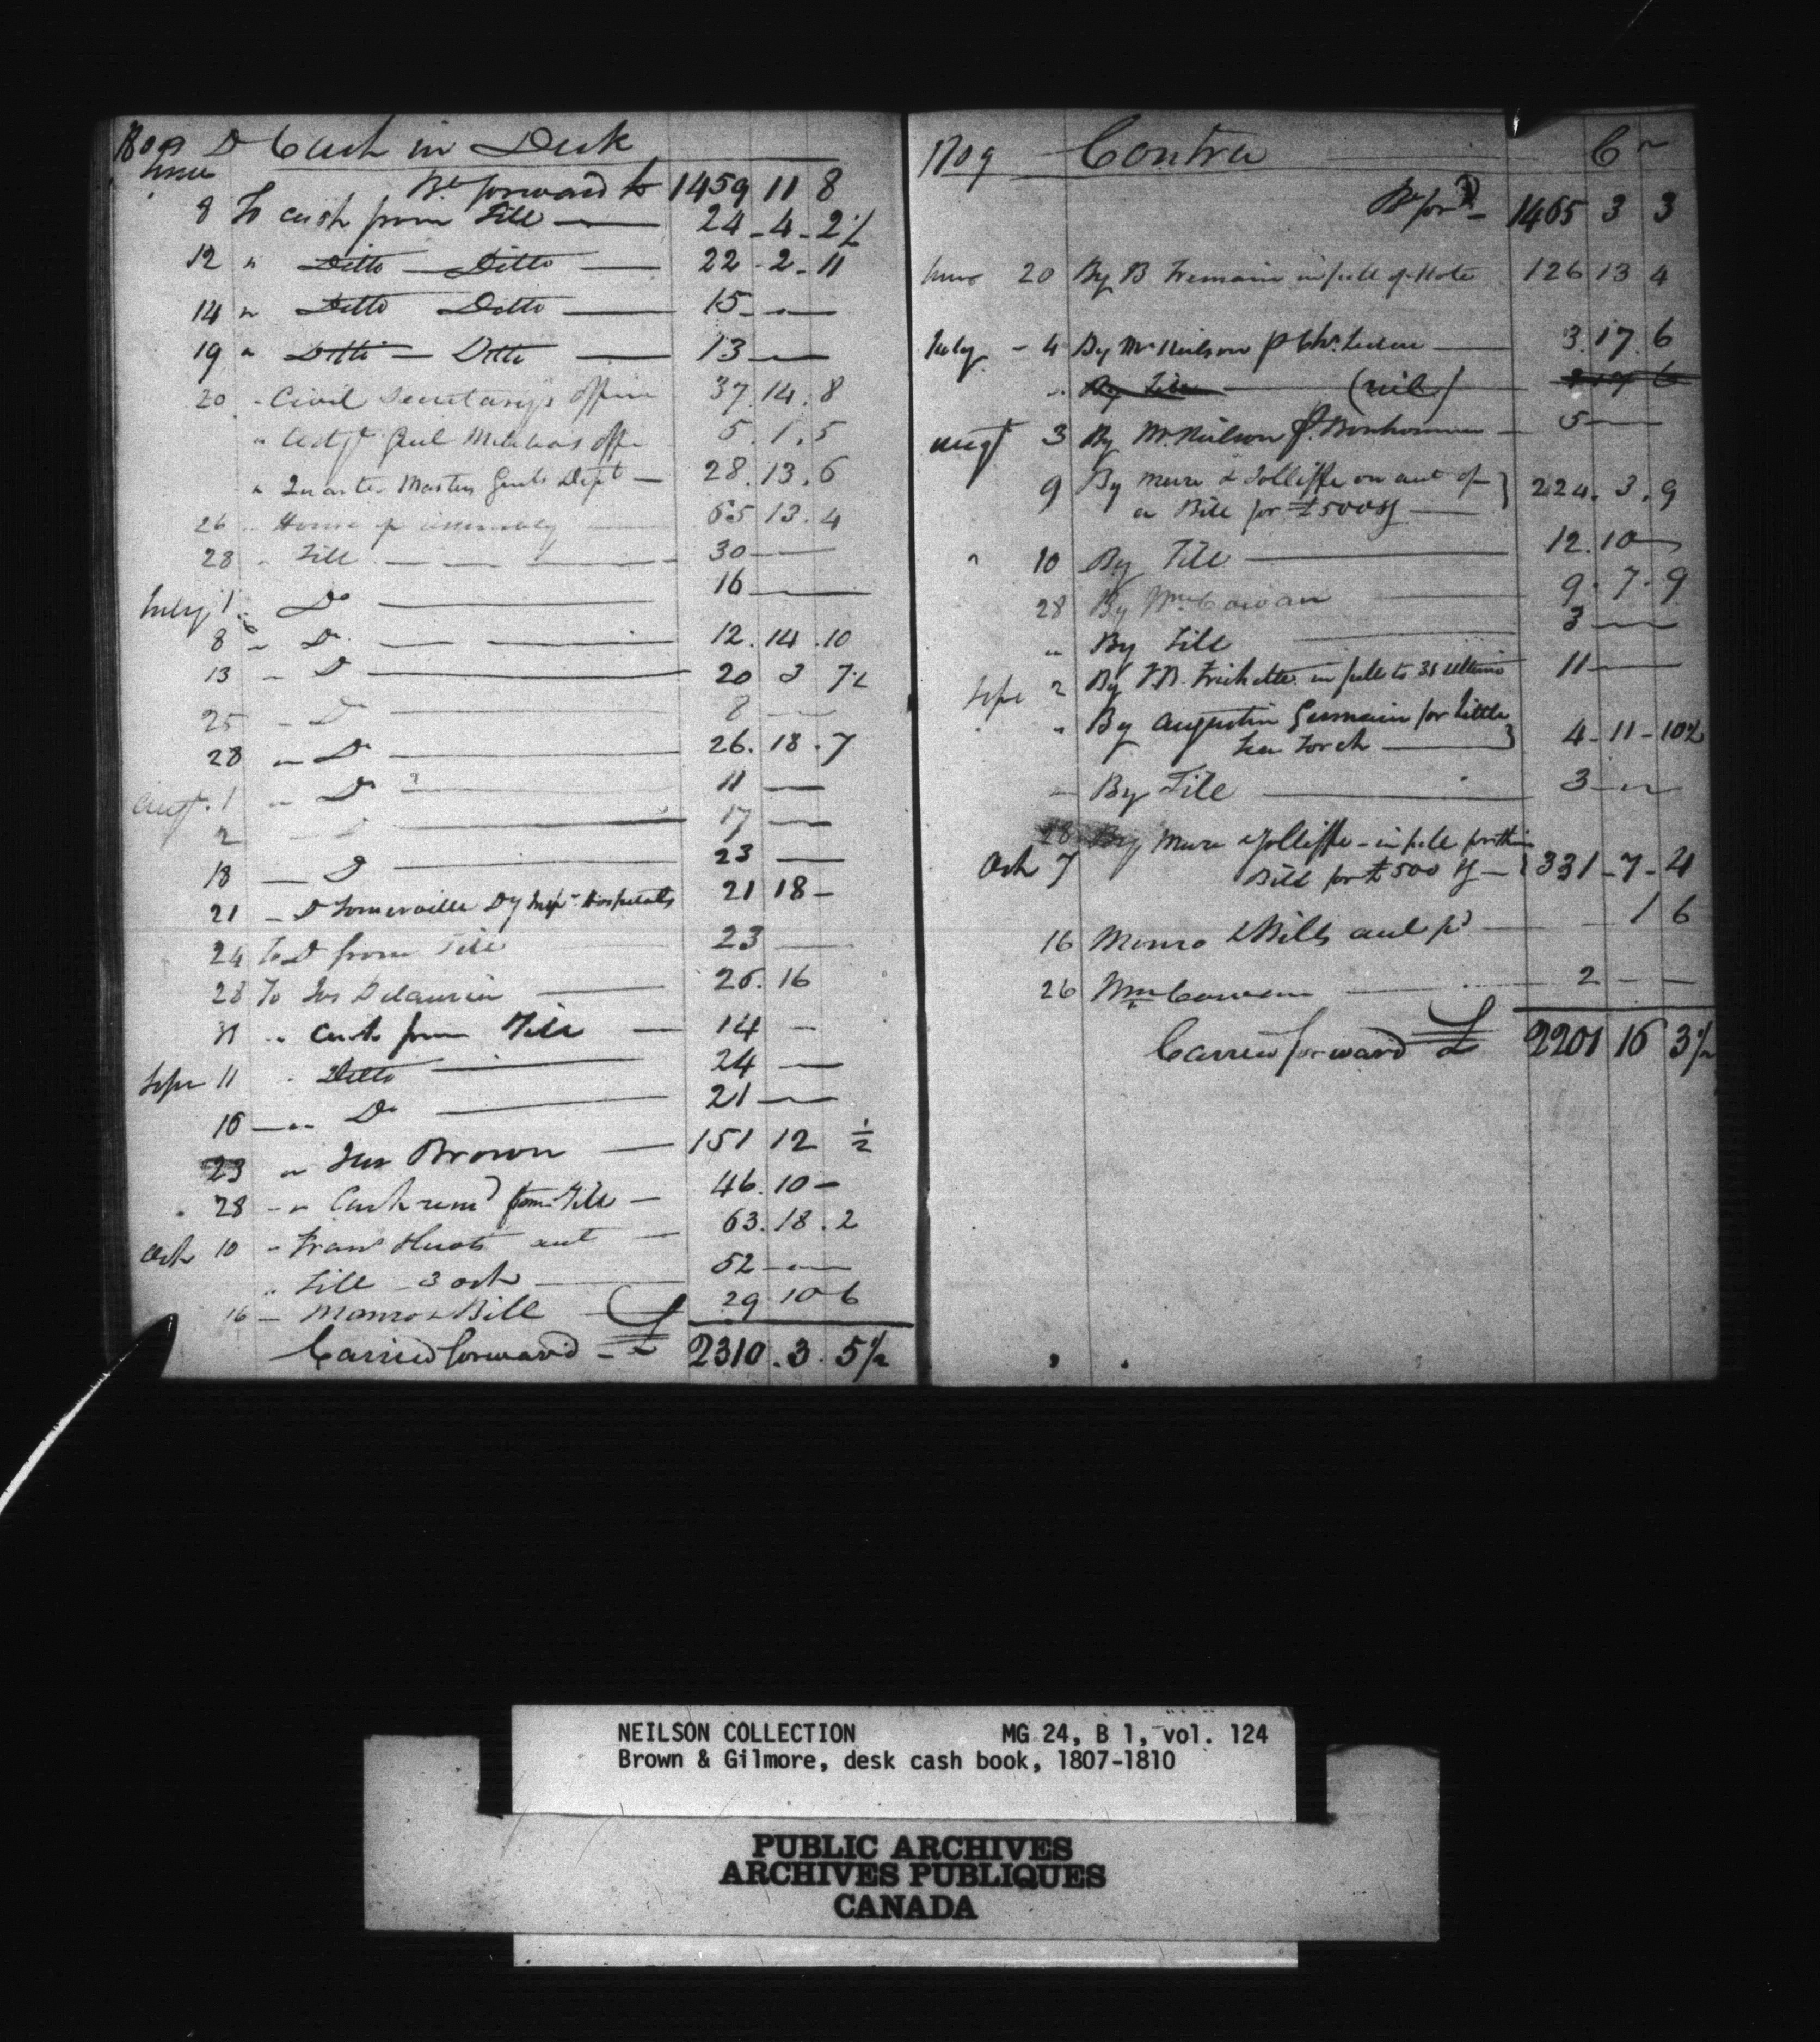 1809 Dr Cash in Desk
June
Bt. forward to 1459 11 8
8 To cash from Till — 24 - 4 - 2½
12 " Ditto — Ditto — 22 - 2 - 11
14 " Ditto Ditto — 15 - " -
19 " Ditto — Ditto — 13 —
20 " Civil Secretary's Office 37. 14. 8
" Adjt. Genl Militia's offe 5. 1. 5
" Quarter Masters Genls Dept — 28. 13. 6
26 " House of assembly — 65 13. 4
28 " Till — 30 —
July 1 " Do — 16 —
8 " Do — 12. 14. 10
13 " Do — 20 3 7½
25 " Do — 8 —
28 " Do — 26. 18. 7
Augt. 1 " Do — 11 —
2 — 17 —
18 — Do — 23 —
21 — Dr Somerville Dy Inspr. Hospitals 21 18 -
24 To Do from Till 23 —
28 To Jos Delaurier — 26. 16
31 " Cash from Till — 14 —
Sepr 11 " Ditto — 24 —
16 — " Do — 21 —
23 " Jas Brown — 151 12 ½
28 - " Cash recd from Till — 46. 10 -
Octr 10 " Frans Huots acct — 63. 18. 2
" Till 3 octr — 52 —
16 — Monro & Bill — 29 10 6
Carried forward — £ 2310. 3. 5½
1809 Contra Cr
Bt ford — 1465 3 3
June 20 By B Tremain in full of Note 126 13 4
July - 4 By Mr Neilson p Chs. — 3. 17. 6
" By Till — (nil) 3 17 6
Augt 3 By Mr. Neilson p. Bonhomme — 5 —
9 By Mure & Jolliffe on acct of
a Bill for £500 Sg — } 224. 3. 9
" 10 By Till — 12. 10 —
28 By Wm. Cowan 9. 7. 9
" By Till 3 —
Sepr 2 By J.B. Frichette in full to 31 Ultimo 11 —
" By Augustin Germain for Little
— } 4 - 11 - 10½
" By Till — 3 - " -
28 By Mure & Jolliffe - in full for their
Octr 7 Bill for £500 Sg — } 331 - 7 - 4
16 Monro & Bills acct pd — 1 6
26 Wm Cowan — 2 — —
Carried forward £ 2201 16 3½
NEILSON COLLECTION MG 24, B 1, vol. 124
Brown & Gilmore, desk cash book, 1807-1810
PUBLIC ARCHIVES
ARCHIVES PUBLIQUES
CANADA